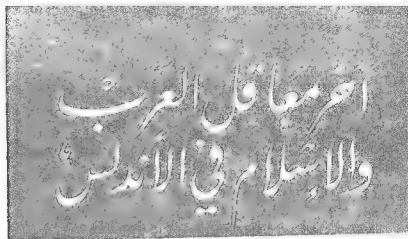 آخر معاقل العرب
والإسلام في الأندلس